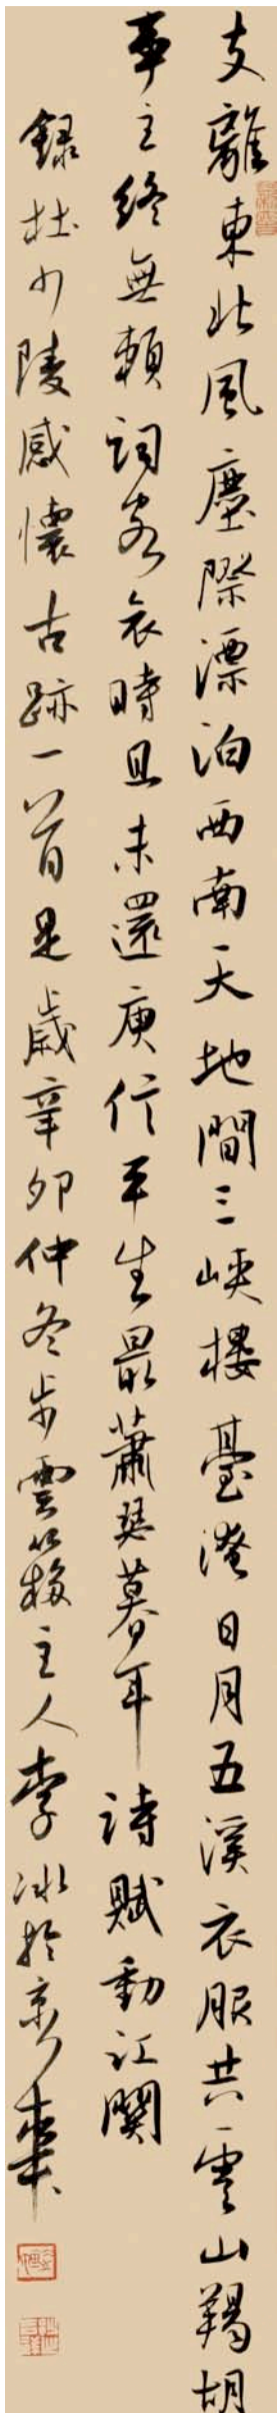 支離東北風塵際漂泊西南天地間三峽樓臺淹日月五溪衣服共雲山羯胡
事主終無賴詞客哀時且未還庾信平生最蕭瑟暮年詩賦動江關
錄杜少陵感懷古跡一首是歲辛卯仲冬步雲簃主人李冰於京華